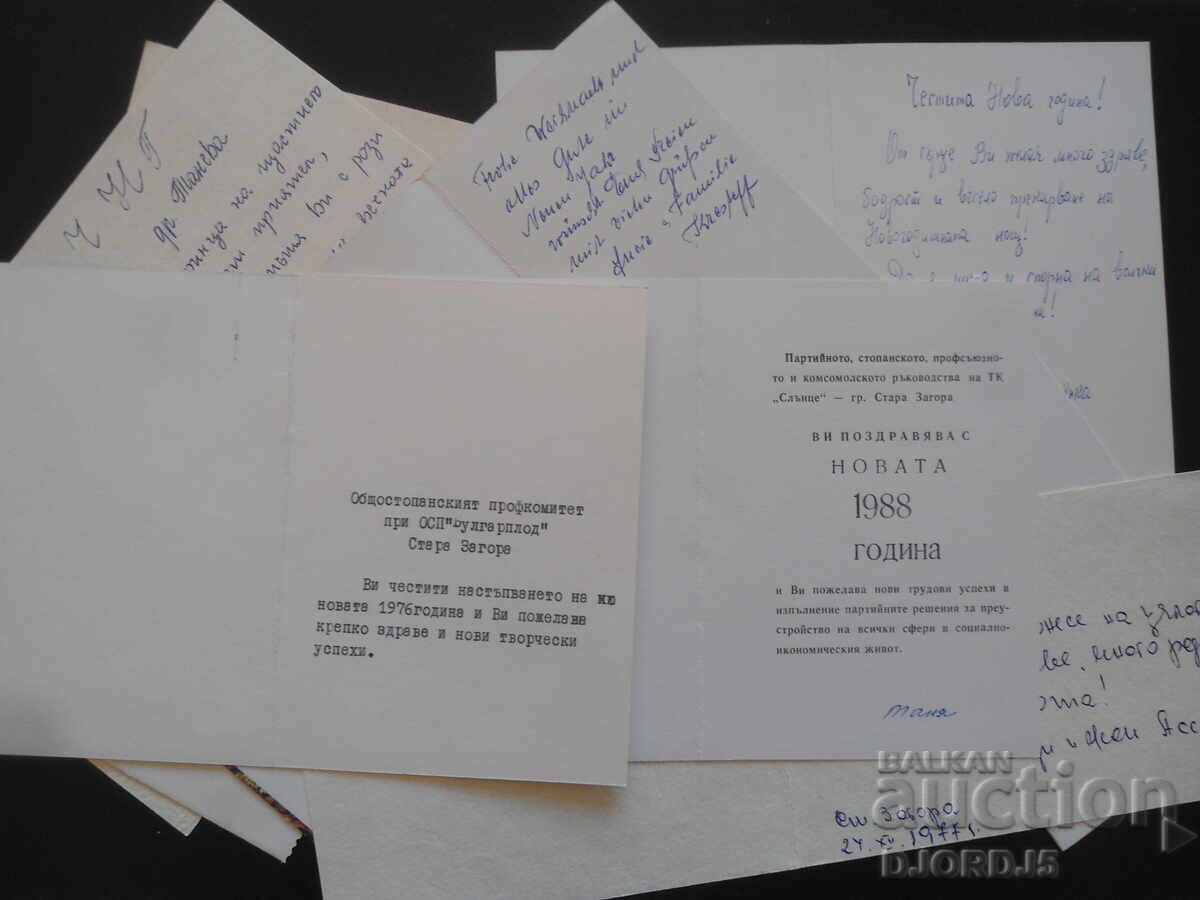 Ч Н Г
др. Танева
приятел,
Ви с рози
Frohe Weihnachten und
alles Gute im
Neuen Jahr
mit vielen Grüßen
Familie
Честита Нова година!
От сърце Ви желая много здраве,
бодрост и весело прекарване на
Новогодишната нощ!
на всички
Общостопанският профкомитет
при ОСП"Булгарплод"
Стара Загора
Ви честити настъпването на
новата 1976година и Ви пожелава
крепко здраве и нови творчески
успехи.
Партийното, стопанското, профсъюзно-
то и комсомолското ръководства на ТК
„Слънце“ — гр. Стара Загора
ВИ ПОЗДРАВЯВА С
НОВАТА
1988
ГОДИНА
и Ви пожелава нови трудови успехи в
изпълнение партийните решения за преу-
стройство на всички сфери в социално-
икономическия живот.
Таня
на цялото
ве, много
Ст Загора
24.XII.1977г.
BALKAN
auction
DJORDJ5